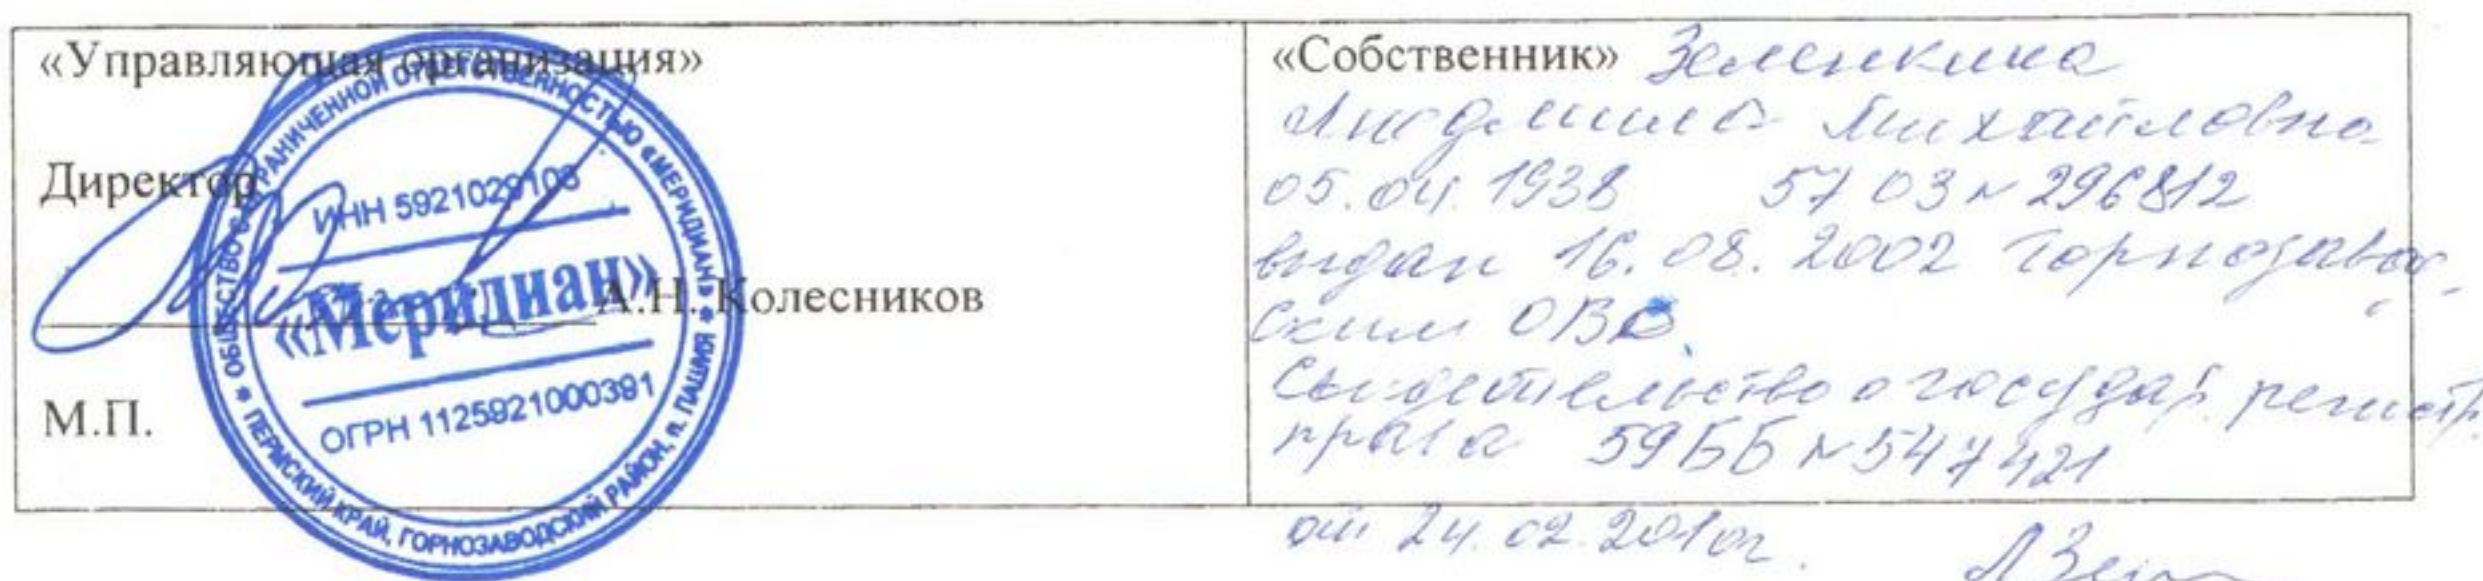 «Управляющая организация»
Директор
А.Н. Колесников
М.П.
ОБЩЕСТВО С ОГРАНИЧЕННОЙ ОТВЕТСТВЕННОСТЬЮ «МЕРИДИАН»
ПЕРМСКИЙ КРАЙ, ГОРНОЗАВОДСКИЙ РАЙОН, п. ПАШИЯ
ИНН 5921029103
«Меридиан»
ОГРН 1125921000391
«Собственник» Зеленкина
Людмила Михайловна
05.04.1938 57 03 № 296812
выдан 16.08.2002 Горнозавод-
ским ОВД.
Свидетельство о государ. регистр.
права 59ББ № 547421
от 24.02.2010г.